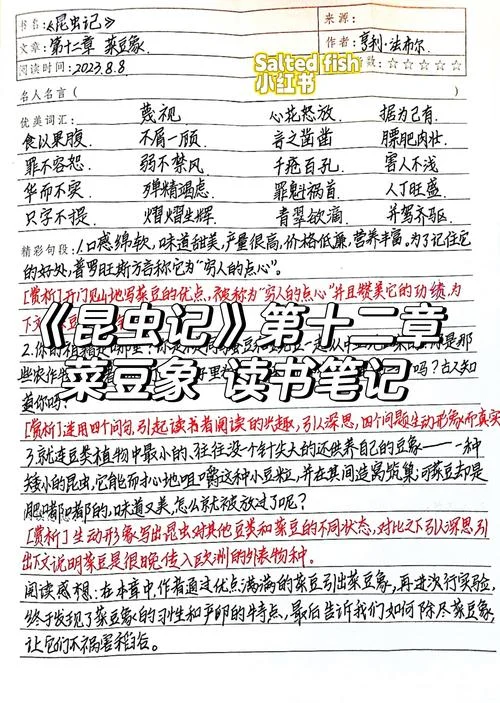 书名:《昆虫记》
来源:
文章:第十二章 菜豆象
作者:亨利·法布尔
阅读时间:2023.8.8
数:☆☆☆☆☆
Salted fish
小红书
名人名言(
优美词汇: 蔑视 心花怒放. 据为己有.
食以果腹. 不屑一顾. 言之凿凿 膘肥肉壮.
罪不容恕. 弱不禁风. 千疮百孔. 害人不浅
华而不实. 殚精竭虑. 罪魁祸首. 人丁旺盛
只字不提. 熠熠生辉. 青翠欲滴. 并驾齐驱.
精彩句段:1.口感绵软,味道甜美,产量很高,价格低廉,营养丰富。为了记住它
的好处,普罗旺斯方言称它为“穷人的点心”。
[赏析]开门见山地写菜豆的优点,被称为“穷人的点心”并且赞美它的功绩,为
下文
《昆虫记》第十二章
菜豆象 读书笔记
2.你的祖籍
那些农作
吗?古人知
道你吗?
[赏析]运用四个问句,引起读书者阅读的兴趣,引人深思,四个问题生动形象而真实
3.就连豆类植物中最小的、往往没个针尖大的还供养自己的豆象——一种
矮小的昆虫,它能耐心地咀嚼这种小豆粒,并在其间造窝筑巢;可菜豆却是
肥嘟嘟的,味道又美,怎么就被放过了呢?
[赏析]生动形象写出昆虫对其他豆类和菜豆的不同状态,对比之下引人深思,引
出下文说明菜豆是很晚传入欧洲的外来物种。
阅读感想:在本章中,作者通过优点满满的菜豆引出菜豆象,再进行实验,
终于发现了菜豆象的习性和产卵的特点,最后告诉我们如何除尽菜豆象,
让它们不祸害稻谷。